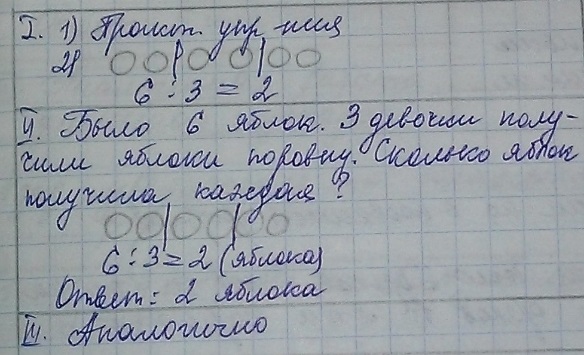 I. 1) Практ. упр-ния
2)
6 : 3 = 2
II. Было 6 яблок. 3 девочки полу-
чили яблоки поровну. Сколько яблок
получила каждая?
6 : 3 = 2 (яблока)
Ответ: 2 яблока
III. Аналогично